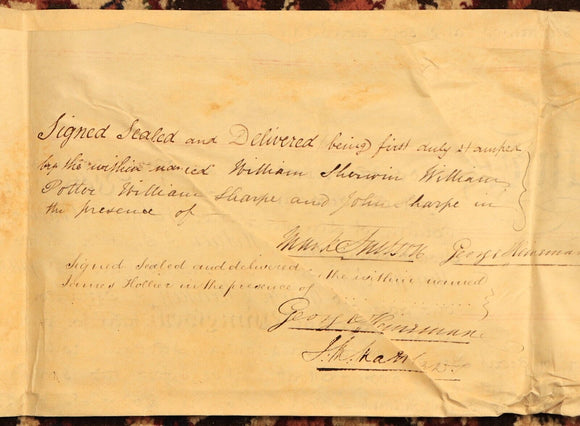 Signed Sealed and Delivered being first duly stamped
by the within named William Sherwin William
Potter William Sharpe and John Sharpe in
the presence of
Mark
Signed Sealed and delivered the within named
James Hollier in the presence of